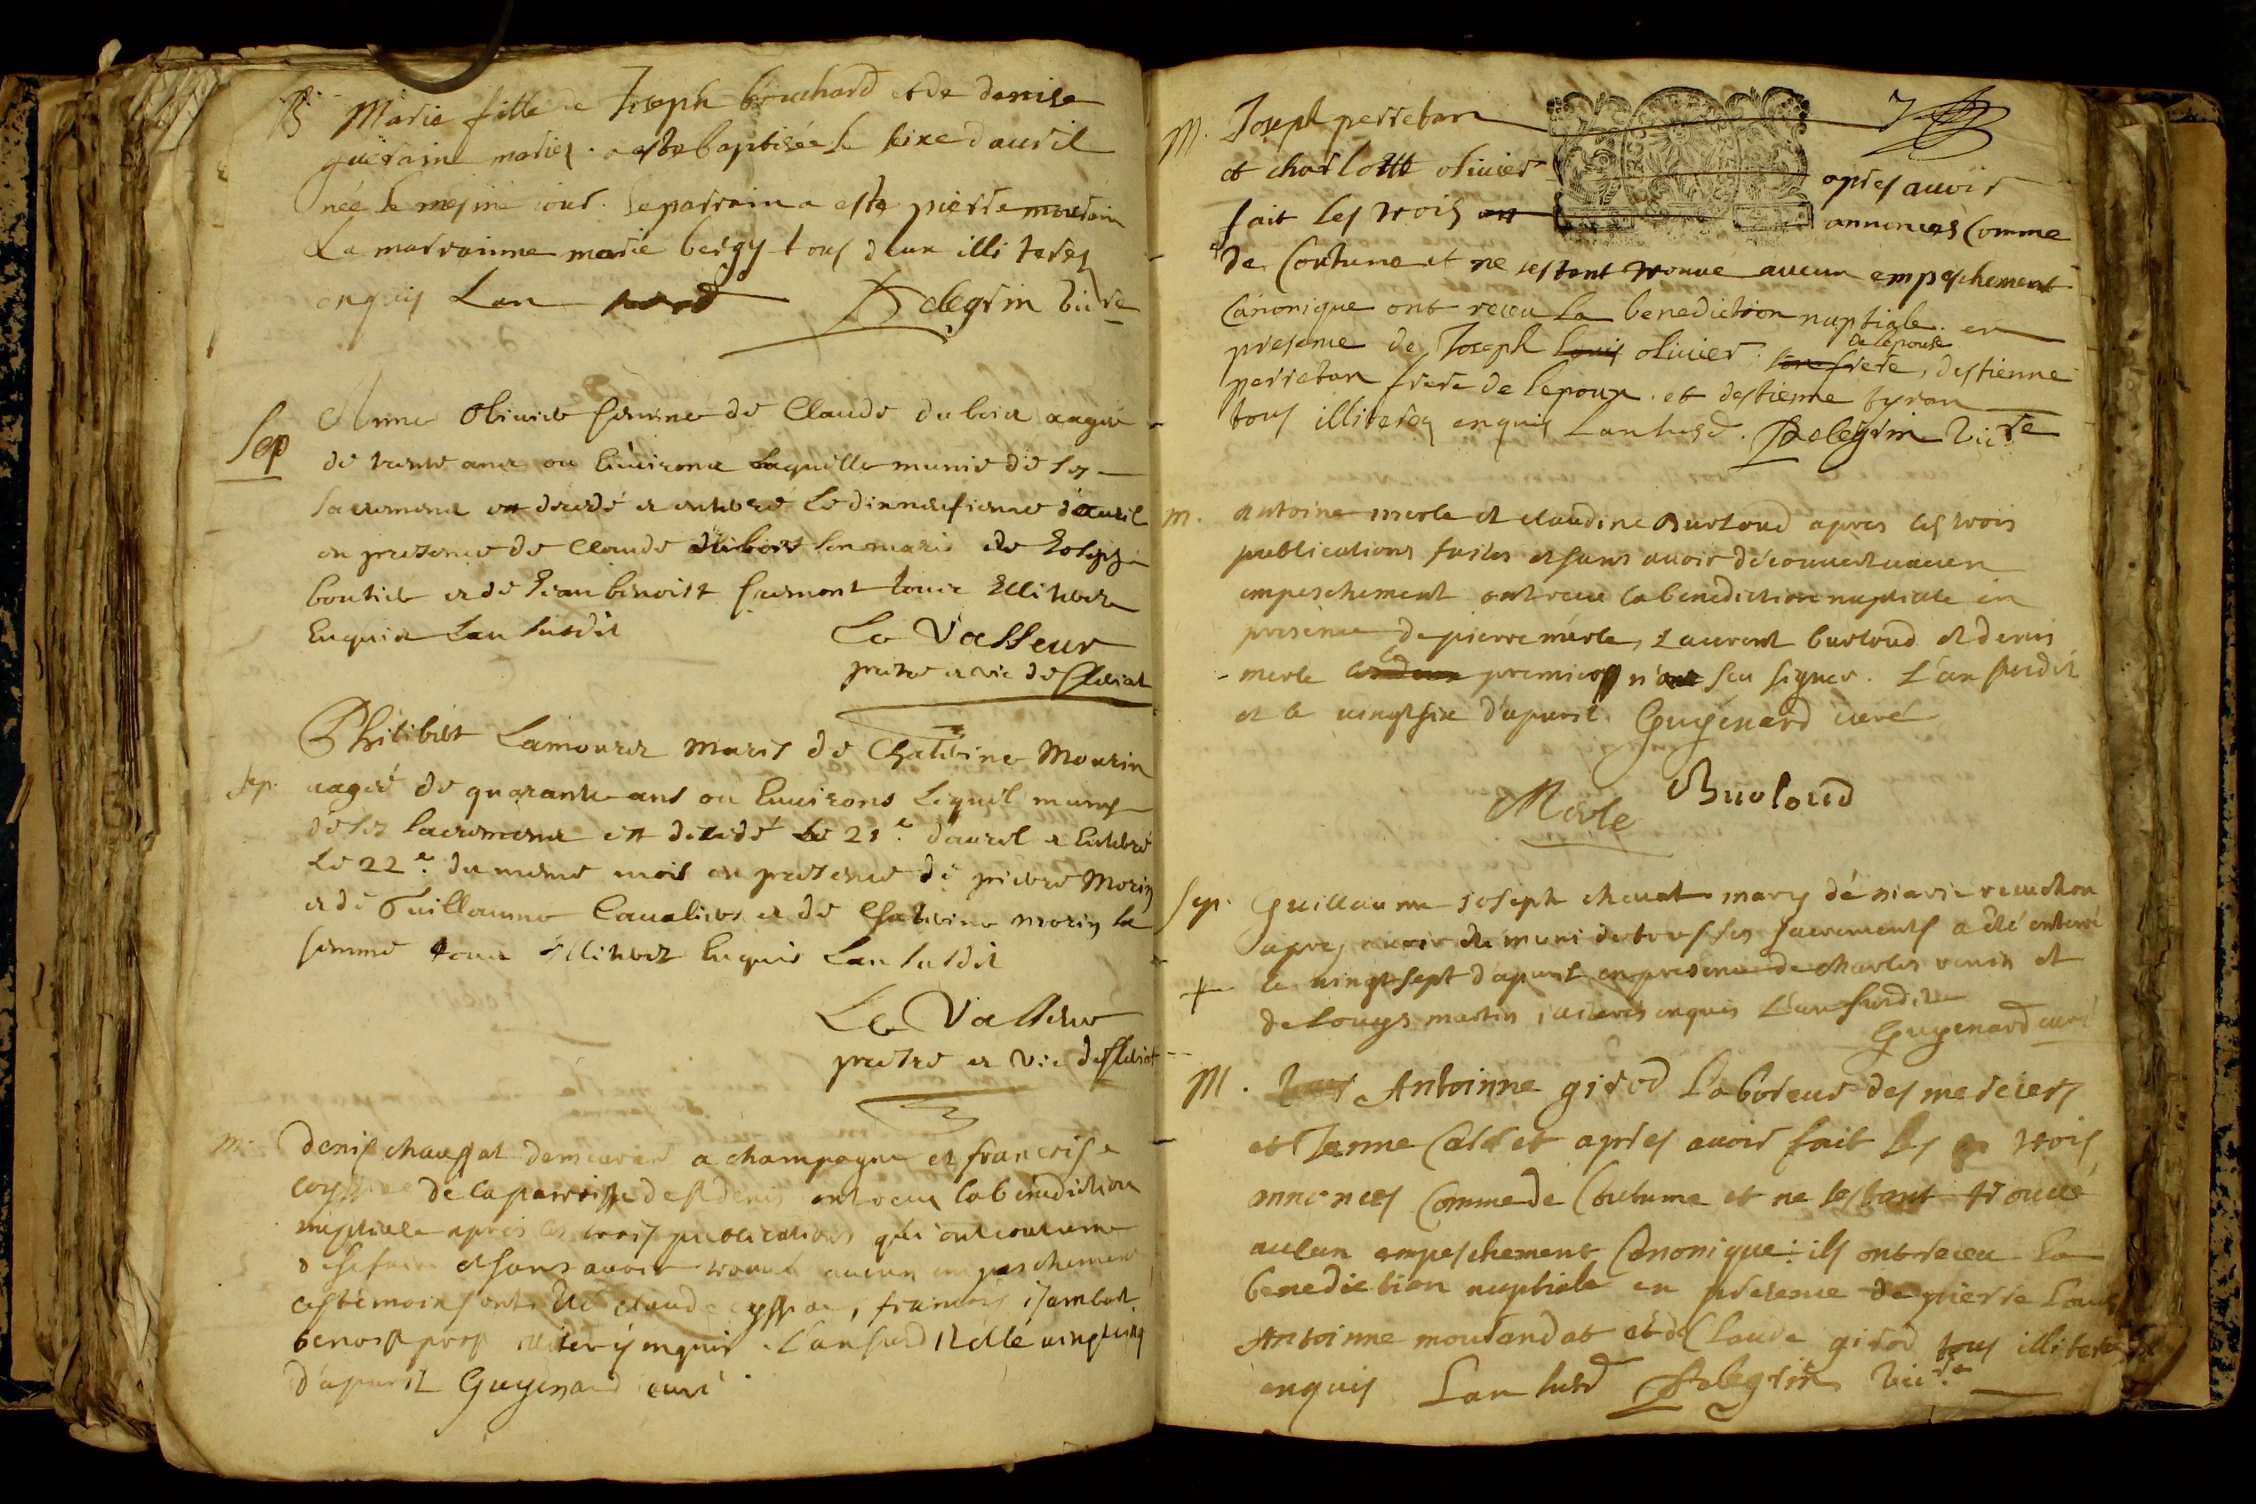 B Marie fille de Joseph bouchard et de denise
gueraine mariez a este baptisée le seize d'avril
née le mesme jour. le parrain a esté pierre mourain
La marrainne marie bergy tous deux illiterez
enquis L'an susd Pelegrin vicre
Sep Anne Olivier femme de Claude dubois aagée
de trente ans ou Environs Laquelle munie de ses
sacremens est decedé et enterré le dixneufieme d'avril
en presence de Claude dubois son mari de Joseph
boutier et de Jean benoist fremont tous Illiterez
Enquis L'an susdit Le Vasseur
pretre et vic de
Sep. Philibert Lamourez maris de Chaterine Mourin
aagé de quarante ans ou Environs Lequel muny
de ses sacremens est decedé Le 21e d'avril et Enterré
Le 22e du meme mois en presence de pierre Morin
et de Guillaume Cavalier et de Chaterine morin sa
femme tous illiterez Enquis L'an susdit
Le Vasseur
pretre et vic de
m. denis chaussat demeurant a champagne et francoise
de la parroisse de st denis ont receu la benediction
nuptiale apres les trois publications qui ont coutume
de se faire et sans avoir trouvé aucun empeschement
les temoins ont été claude, francois
benoist illiteréz enquis. L'an susdit et le vingt
d'apvril Guyenard curé
M. Joseph perretan
et charlotte olivier apres avoir
fait les trois annonces Comme
de Coutume et ne sestant trouvé aucun empeschement
Canonique ont receu La benediction nuptiale. en
presence de Joseph Louis olivier. son frere de l'epouse, d'estienne
perretan frere de lepoux. et d'estienne tyran
tous illiterez enquis L'an susd. Pelegrin vicre
m. Antoine merle et claudine Burloud apres les trois
publications faites et sans avoir découvert aucun
empeschement ont receu la benediction nuptiale en
presence de pierre merle, Laurent burloud et denis
merle premier n'ont seu signer. L'an susdit
et le vingt six d'apvril. Guyenard curé
Merle Burloud
Sep. Guillaume joseph chevat mary de marie
apres avoir été muni de tous ses sacrements a été enterré
+ le vingt sept d'apvril en presence de charles et
de Louys martin, illiterés enquis L'an susdit
Guyenard curé
M. Antoinne girod Laboreur des merciers
et Janne Caldet apres avoir fait les trois
annonces Comme de Coutume et ne sestant trouvé
aucun empeschement Canonique: ils ont receu La
benediction nuptiale en presence de pierre Louis
Antoinne mourandat et de Claude girod tous illiterez
enquis L'an susd Pelegrin vicre